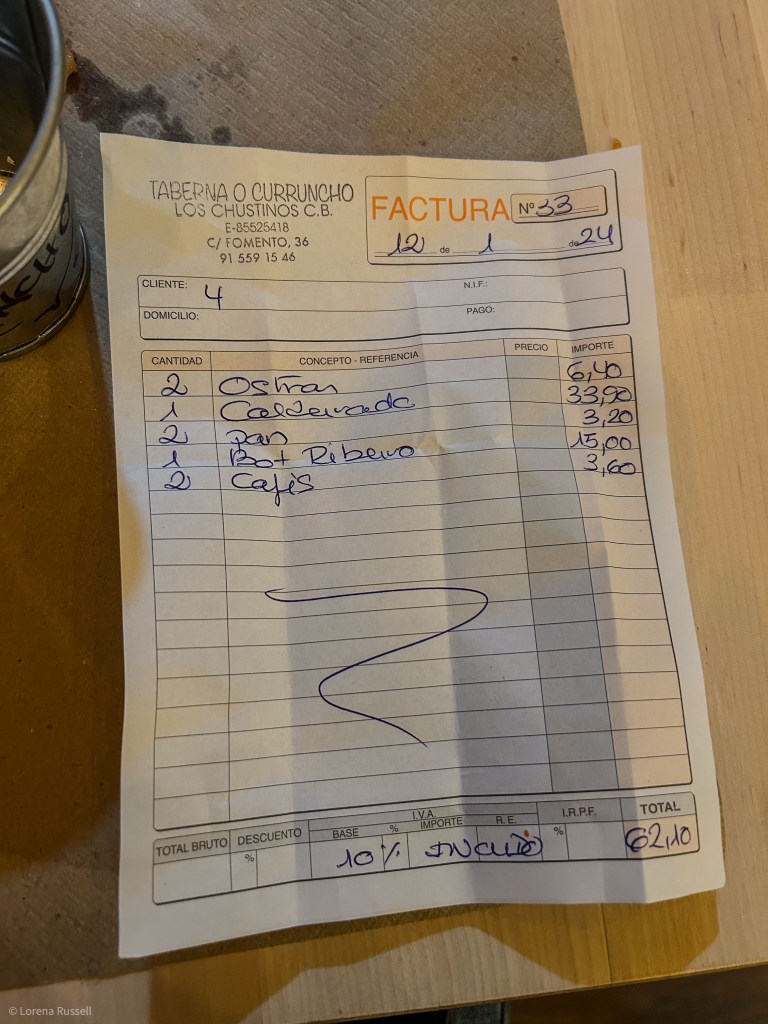 TABERNA O CURRUNCHO
LOS CHUSTINOS C.B.
E-85525418
C/ FOMENTO, 36
91 559 15 46
FACTURA Nº 33
12 de 1 de 24
CLIENTE: 4 N.I.F.:
DOMICILIO: PAGO:
CANTIDAD CONCEPTO - REFERENCIA PRECIO IMPORTE
2 Ostras 6,40
1 Caldeirada 33,90
2 pan 3,20
1 Bot Ribeiro 15,00
2 Cafés 3,60
TOTAL BRUTO DESCUENTO I.V.A. I.R.P.F. TOTAL
BASE % IMPORTE R.E.
% 10% INCLUIDO % 62,10
© Lorena Russell